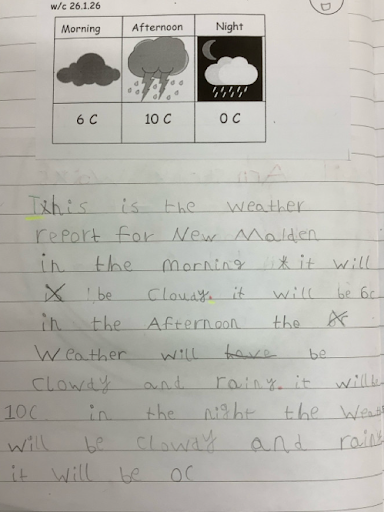 w/c 26.1.26
Morning Afternoon Night
6 C 10 C 0 C
This is the weather
report for New Malden
in the morning it will
be Cloudy. it will be 6c
in the Afternoon the
Weather will have be
Clowdy and rainy. it will
10C in the night the
will be clowdy and
it will be 0C